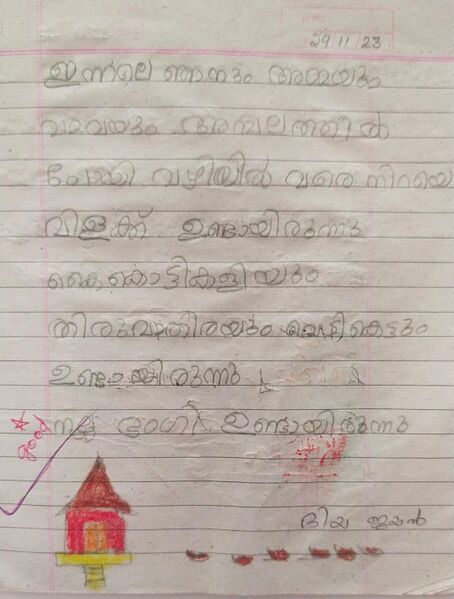 29 11 23
ഇന്നലെ ഞാനും അമ്മയും
വാവയും അമ്പലത്തിൽ
പോയി വഴിയിൽ വരെ നിറയെ
വിളക്ക് ഉണ്ടായിരുന്നു
കൈകൊട്ടികളിയും
തിരുവാതിരയും വെടികെട്ടും
ഉണ്ടായിരുന്നു
നല്ല ഭംഗി ഉണ്ടായിരുന്നു
good
ദിയ ജയൻ